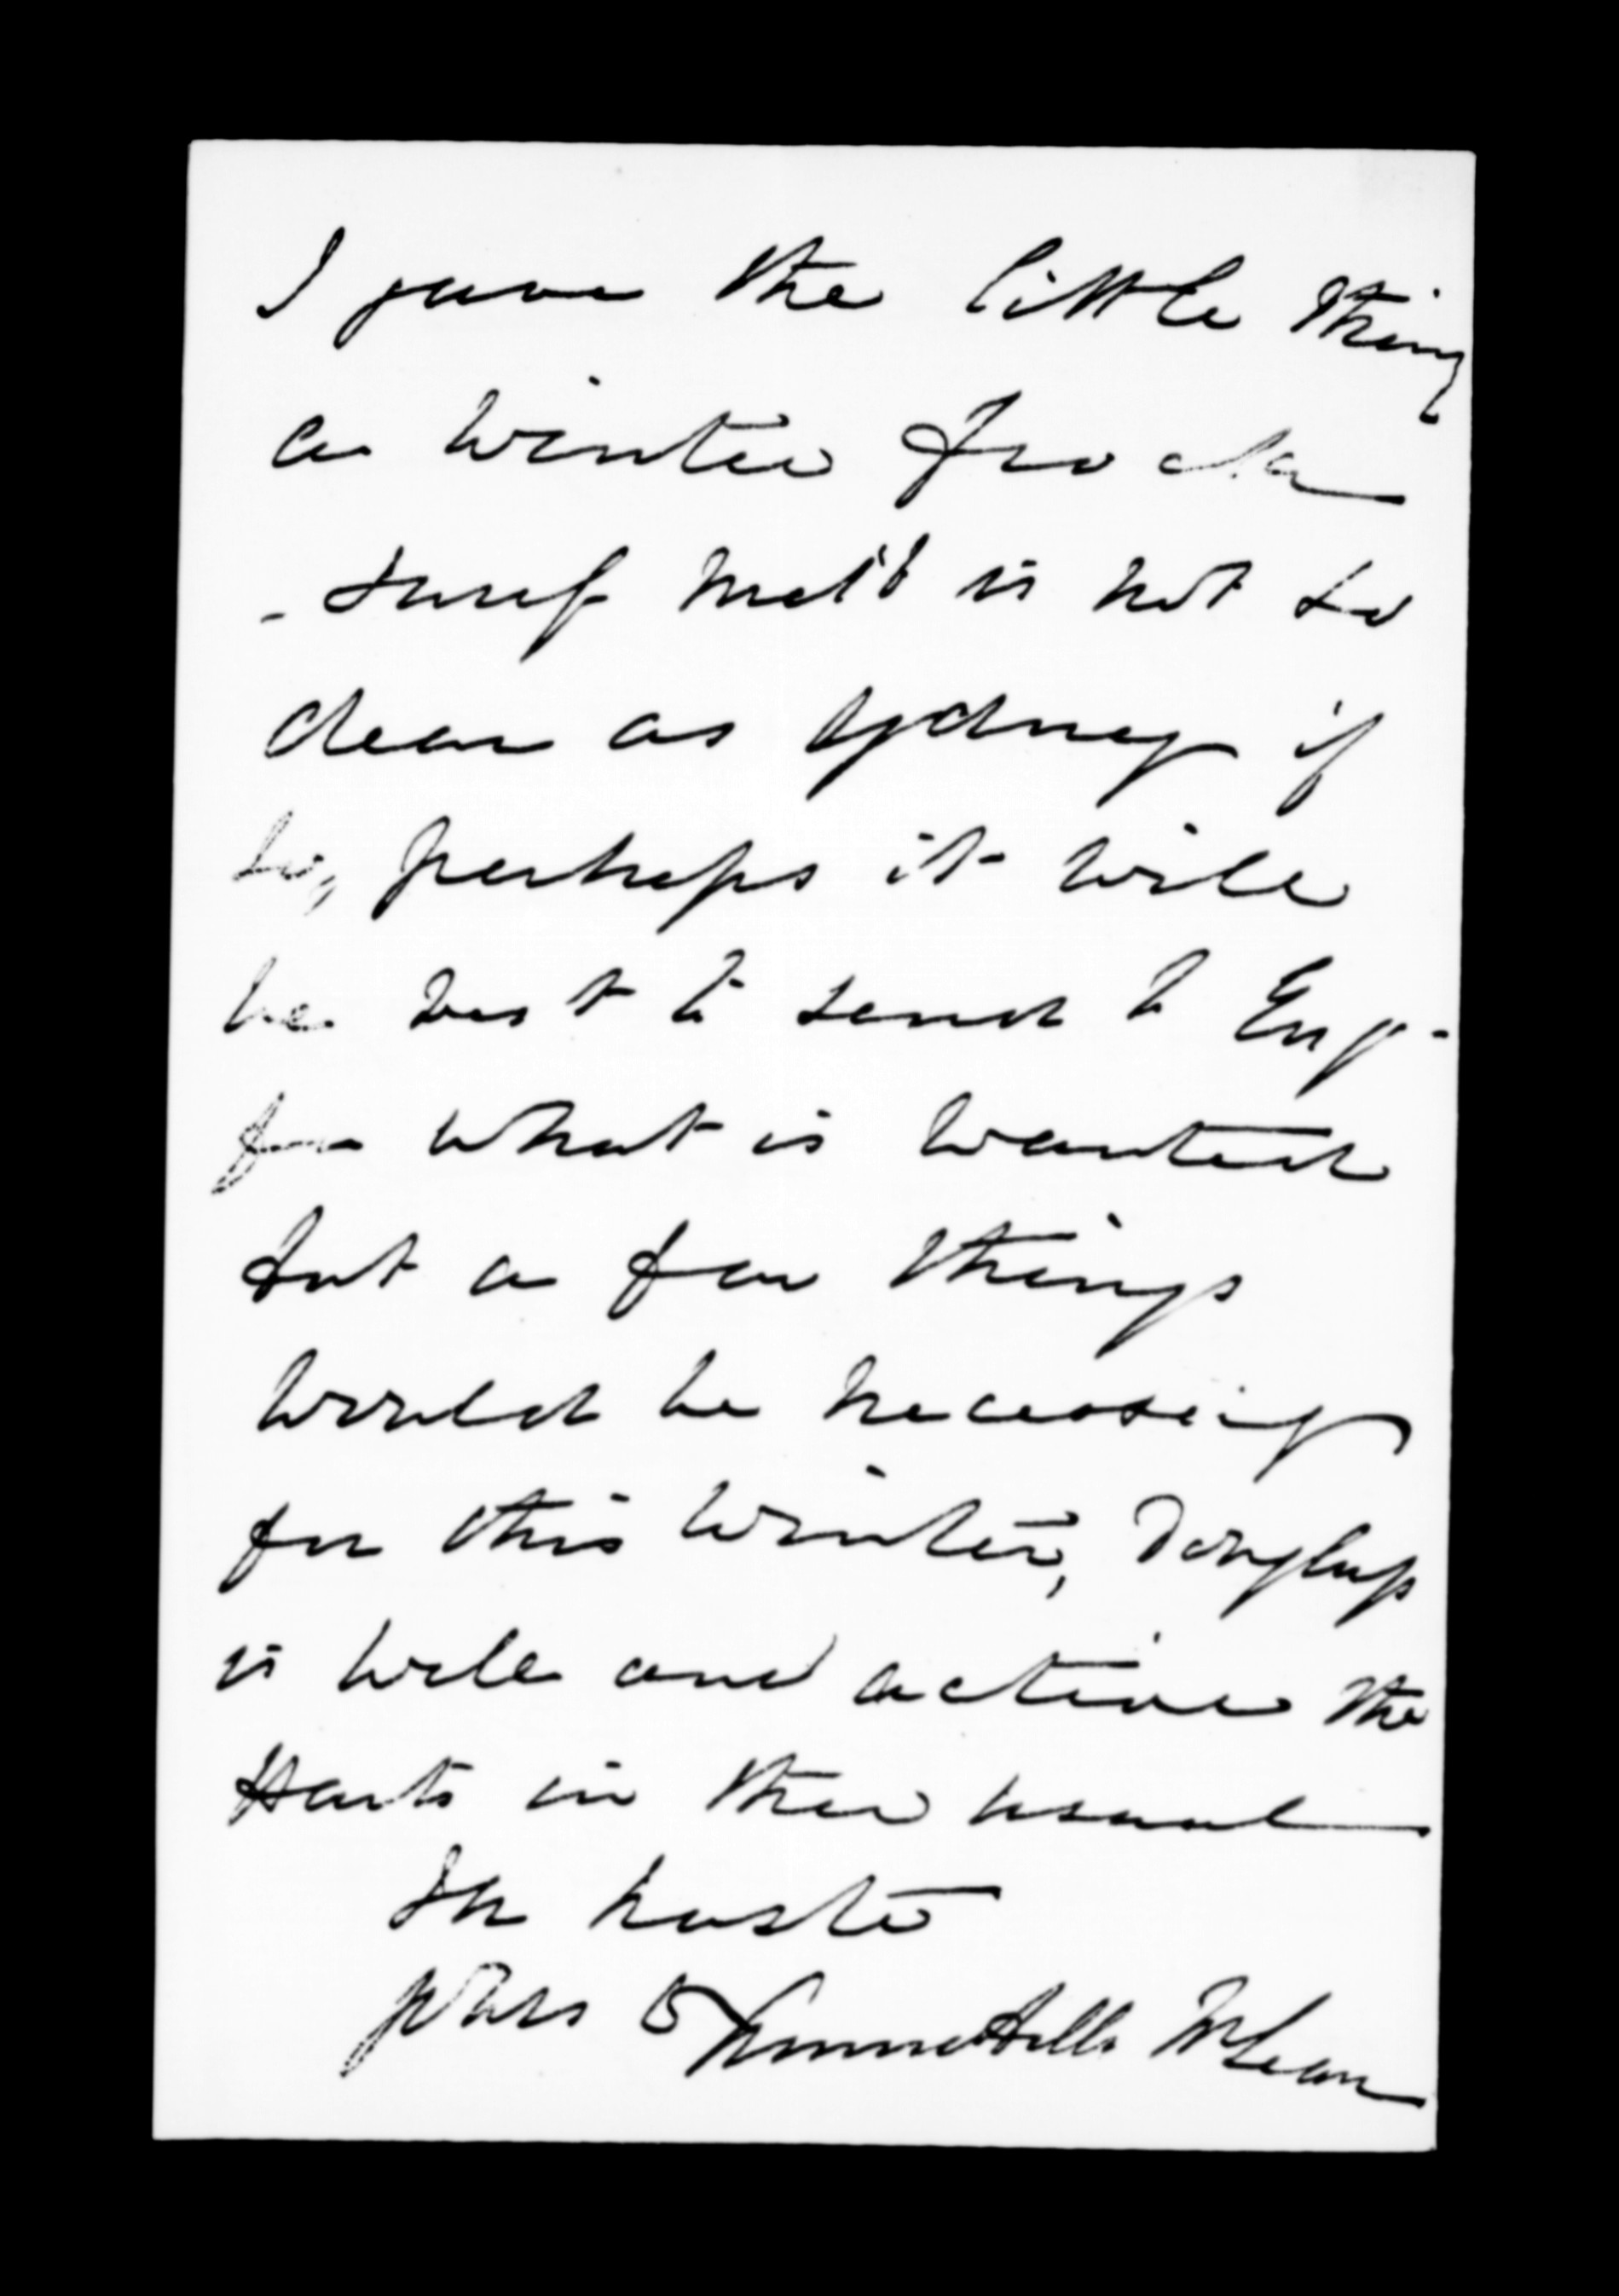 I gave the little thing
a winter Frock
- Surely Melb is not so
dear as Sydney if
so, perhaps it will
be best to send to Eng-
for what is wanted
but a few things
would be necessary
for this winter, Douglass
is well and active the
Harts in their usual
In haste
yours
McLean